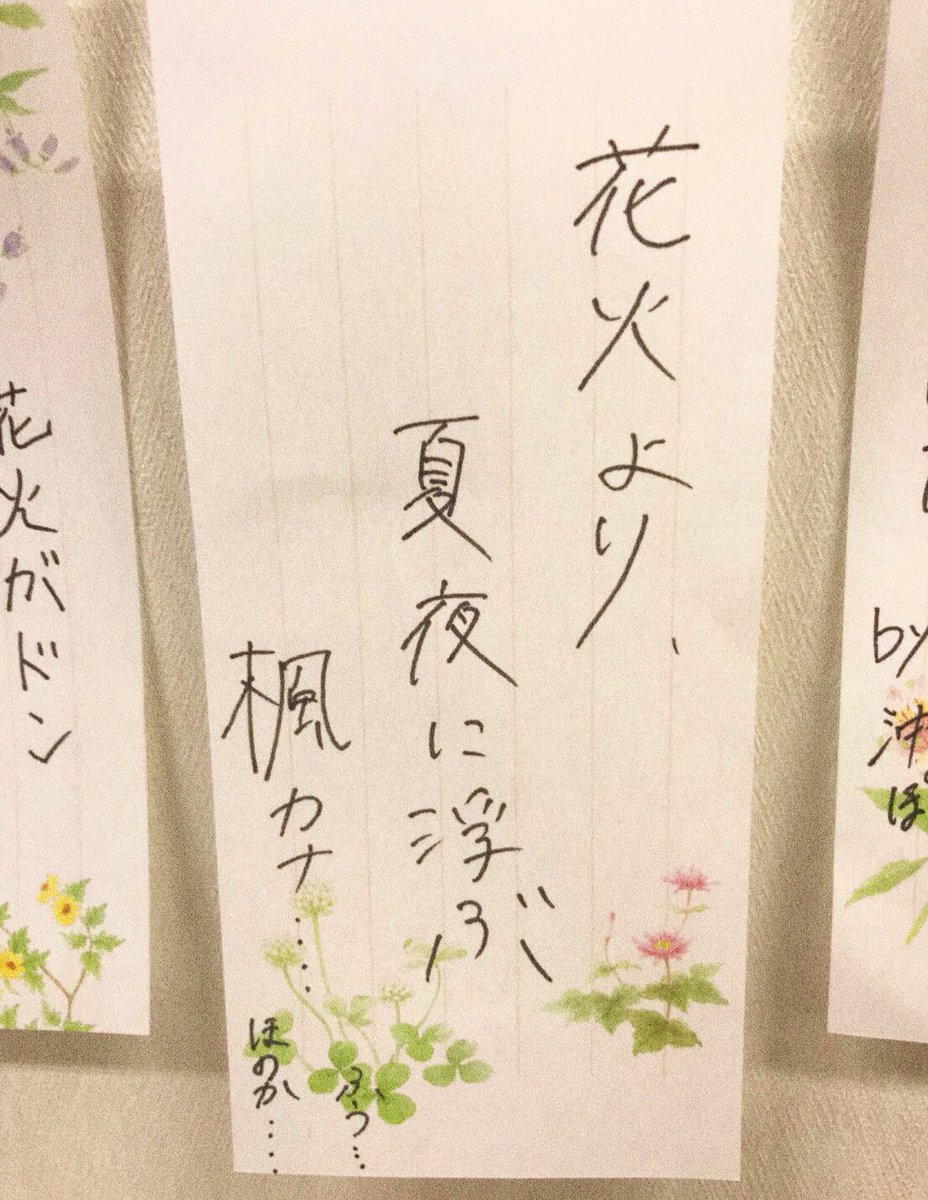 花火より、
夏夜に浮ぶ
楓カナ……
ふう…
ほのか……
花火がドン
by
ぽ